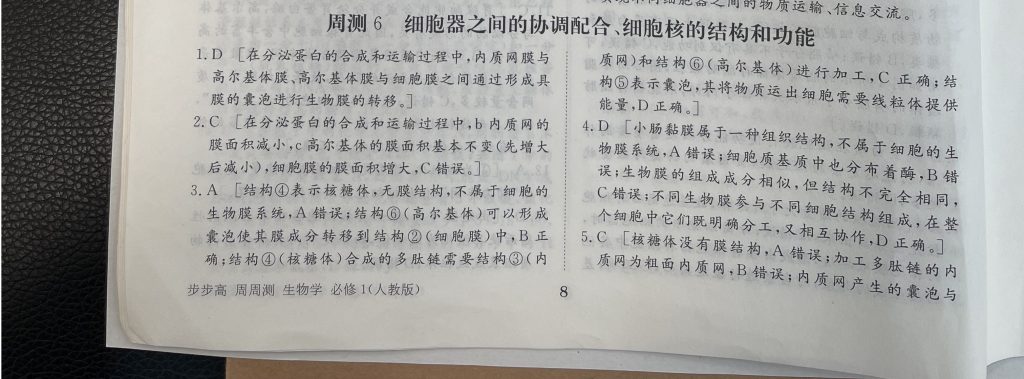 现不同细胞器之间的物质运输、信息交流。
周测6 细胞器之间的协调配合、细胞核的结构和功能
1.D [在分泌蛋白的合成和运输过程中,内质网膜与
高尔基体膜、高尔基体膜与细胞膜之间通过形成具
膜的囊泡进行生物膜的转移。]
2.C [在分泌蛋白的合成和运输过程中,b内质网的
膜面积减小,c高尔基体的膜面积基本不变(先增大
后减小),细胞膜的膜面积增大,C错误。]
3.A [结构④表示核糖体,无膜结构,不属于细胞的
生物膜系统,A错误;结构⑥(高尔基体)可以形成
囊泡使其膜成分转移到结构②(细胞膜)中,B正
确;结构④(核糖体)合成的多肽链需要结构③(内
质网)和结构⑥(高尔基体)进行加工,C正确;结
构⑤表示囊泡,其将物质运出细胞需要线粒体提供
能量,D正确。]
4.D [小肠黏膜属于一种组织结构,不属于细胞的生
物膜系统,A错误;细胞质基质中也分布着酶,B错
误;生物膜的组成成分相似,但结构不完全相同,
C错误;不同生物膜参与不同细胞结构组成,在整
个细胞中它们既明确分工,又相互协作,D正确。]
5.C [核糖体没有膜结构,A错误;加工多肽链的内
质网为粗面内质网,B错误;内质网产生的囊泡与
步步高 周周测 生物学 必修1(人教版)
8